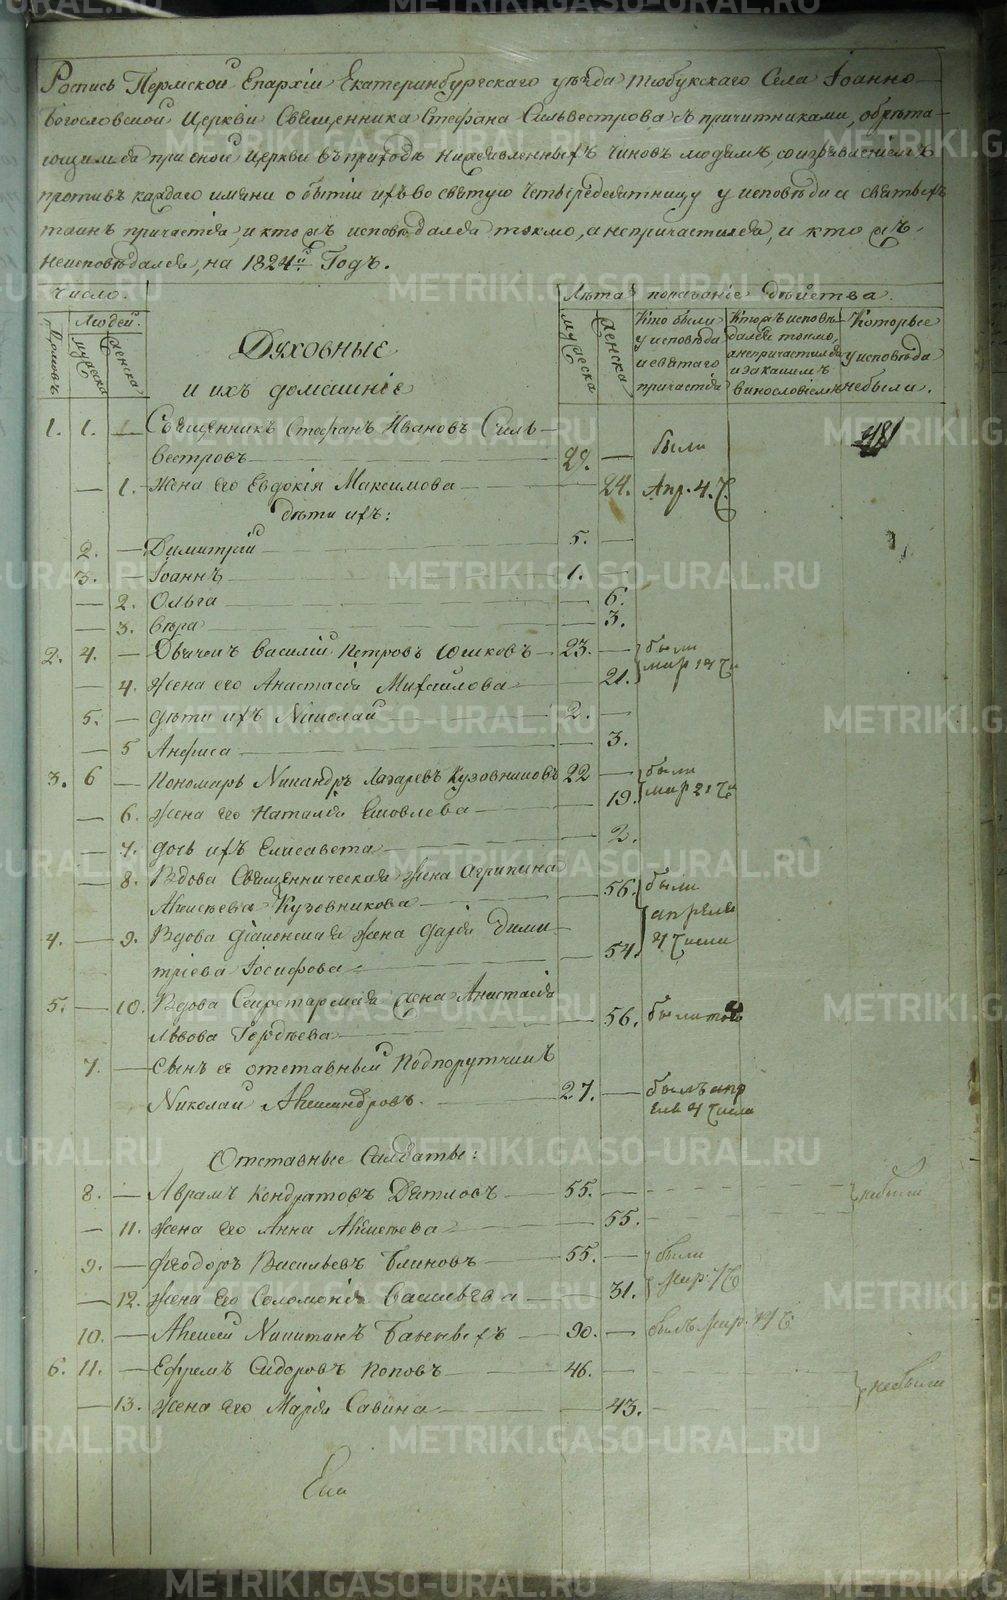 Роспись Пермской Епархіи Екатеринбургскаго уѣзда Тюбукскаго Села Іоанно
Богословской Церкви Священника Стефана Сильвестрова съ причитниками, обрѣта-
ющимися при оной церкви въ приходѣ нижеявленныхъ чиновъ людямъ, со изъявленіемъ
противъ каждаго имяни о бытіи ихъ во святую четыредесятницу у исповѣди и святыхъ
таинъ причастія, и кто изъ исповѣдался токмо, а не причастился, и кто жъ
неисповѣдался, на 1824й Годъ.
Число. Лѣта показаніе дѣйства.
Домовъ Людей. мужеска женска
Духовные
и ихъ домашніе
мужеска женска
Кто были у исповѣди и святаго причастія
Кто жъ исповѣдался токмо, а непричастился и за какимъ винословіемъ
Которые у исповѣди небыли.
1. 1. — Священникъ Стефанъ Ивановъ Силь-
вестровъ 29. — были
— 1. Жена его Евдокія Максимова 24. Апр. 4. Ч.
дѣти ихъ:
2. — Димитрій 5. —
3. — Іоаннъ 1. —
— 2. Ольга — 6.
— 3. Вѣра — 3.
2. 4. — Дьячекъ Василій Петровъ Юшковъ 23. — были
— 4. Жена его Анастасія Михайлова — 21. мар
5. — дѣти ихъ Николай 2. —
— 5 Анфиса — 3.
3. 6 — Пономарь Никандръ Лазаревъ Кузовниковъ 22 — были
— 6. Жена его Наталія Яковлева — 19. мар 21 Ч
— 7. дочь ихъ Елисавета 2.
— 8. Вдова Священническая жена Агрипина
Алексѣева Кузовникова — 56. были
4. — 9. Вдова діаконская жена Дарія Дими- апреля
тріева Іосифова 54. 4 Числа
5. — 10. Вдова Секретарская жена Анастасія
Львова Гордѣева — 56. были
7. — Сынъ ея отставный Подпорутчикъ
Николай Александровъ. 27. — былъ апр
еля 4 Числа
Отставные Салдаты:
8. — Аврамъ Кондратовъ Дятловъ 55. — небыли
— 11. Жена его Анна Алексѣева — 55.
9. — Ѳеодоръ Васильевъ Блиновъ 55. — были
— 12. Жена его Соломонія Васильева — 31. Мар. Ч
10. — Алексѣй Никитинъ 90. — былъ Мар. Ч
6. 11. — Ефремъ Сидоровъ Поповъ 46. — небыли
— 13. Жена его Марія Савина — 43.
METRIKI.GASO-URAL.RU